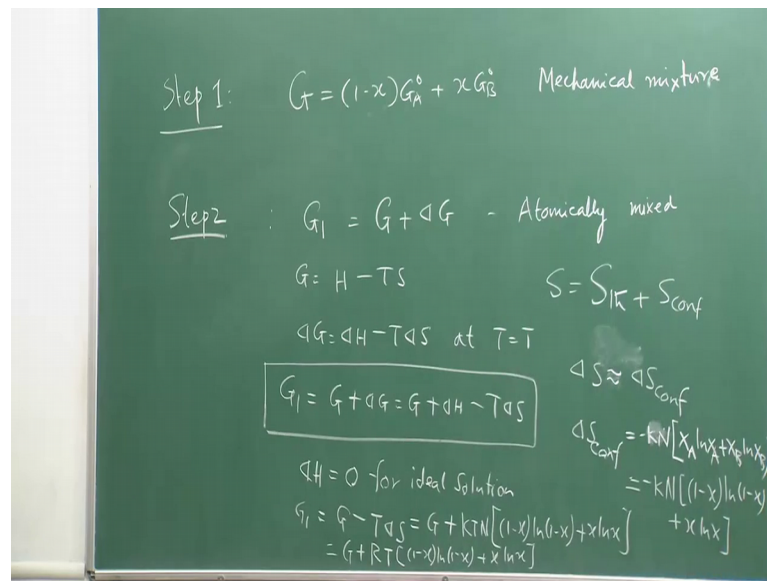 Step 1: G = (1-x)G°A + xG°B Mechanical mixture
Step 2 : G₁ = G + ΔG - Atomically mixed
G = H - TS
S = S_K + S_conf
ΔG = ΔH - TΔS at T=T
ΔS ≈ ΔS_conf
G₁ = G + ΔG = G + ΔH - TΔS
ΔS_conf = -kN[X_A lnX_A + X_B lnX_B]
= -kN[(1-x)ln(1-x)
+ x lnx]
ΔH = 0 for ideal solution
G₁ = G - TΔS = G + kTN[(1-x)ln(1-x) + xlnx]
= G + RT[(1-x)ln(1-x) + x lnx]